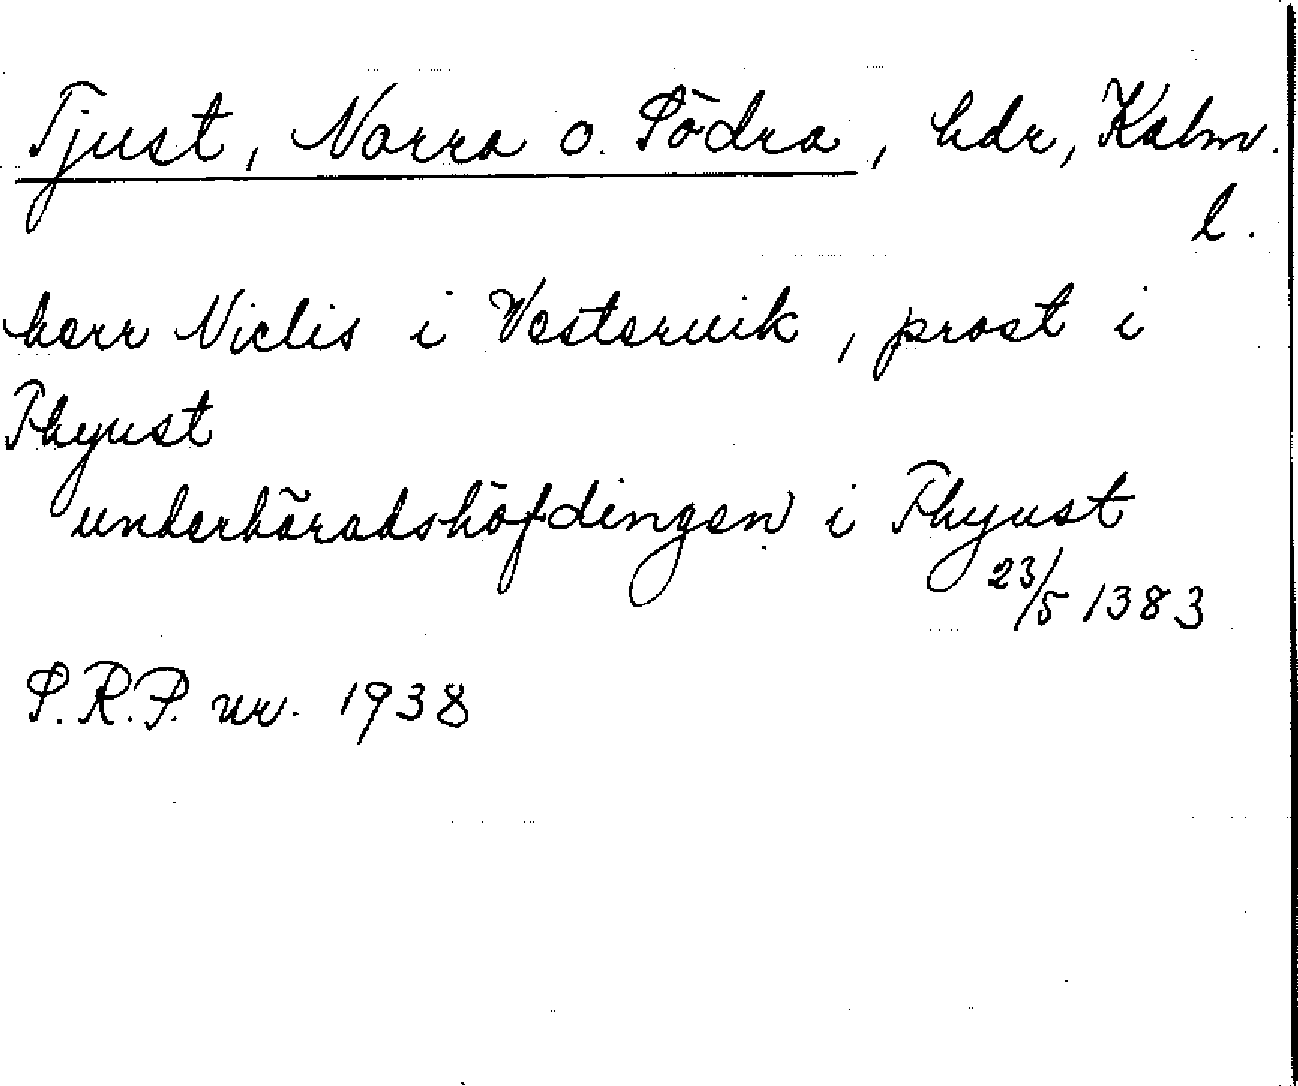 Tjust, Norra o. Södra, hdr, Kalm.
l.
herr Niclis i Vestervik, prost i
Thyust
underhäradshöfdingen i Thyust
23/5 1383
S.R.P. nr. 1938